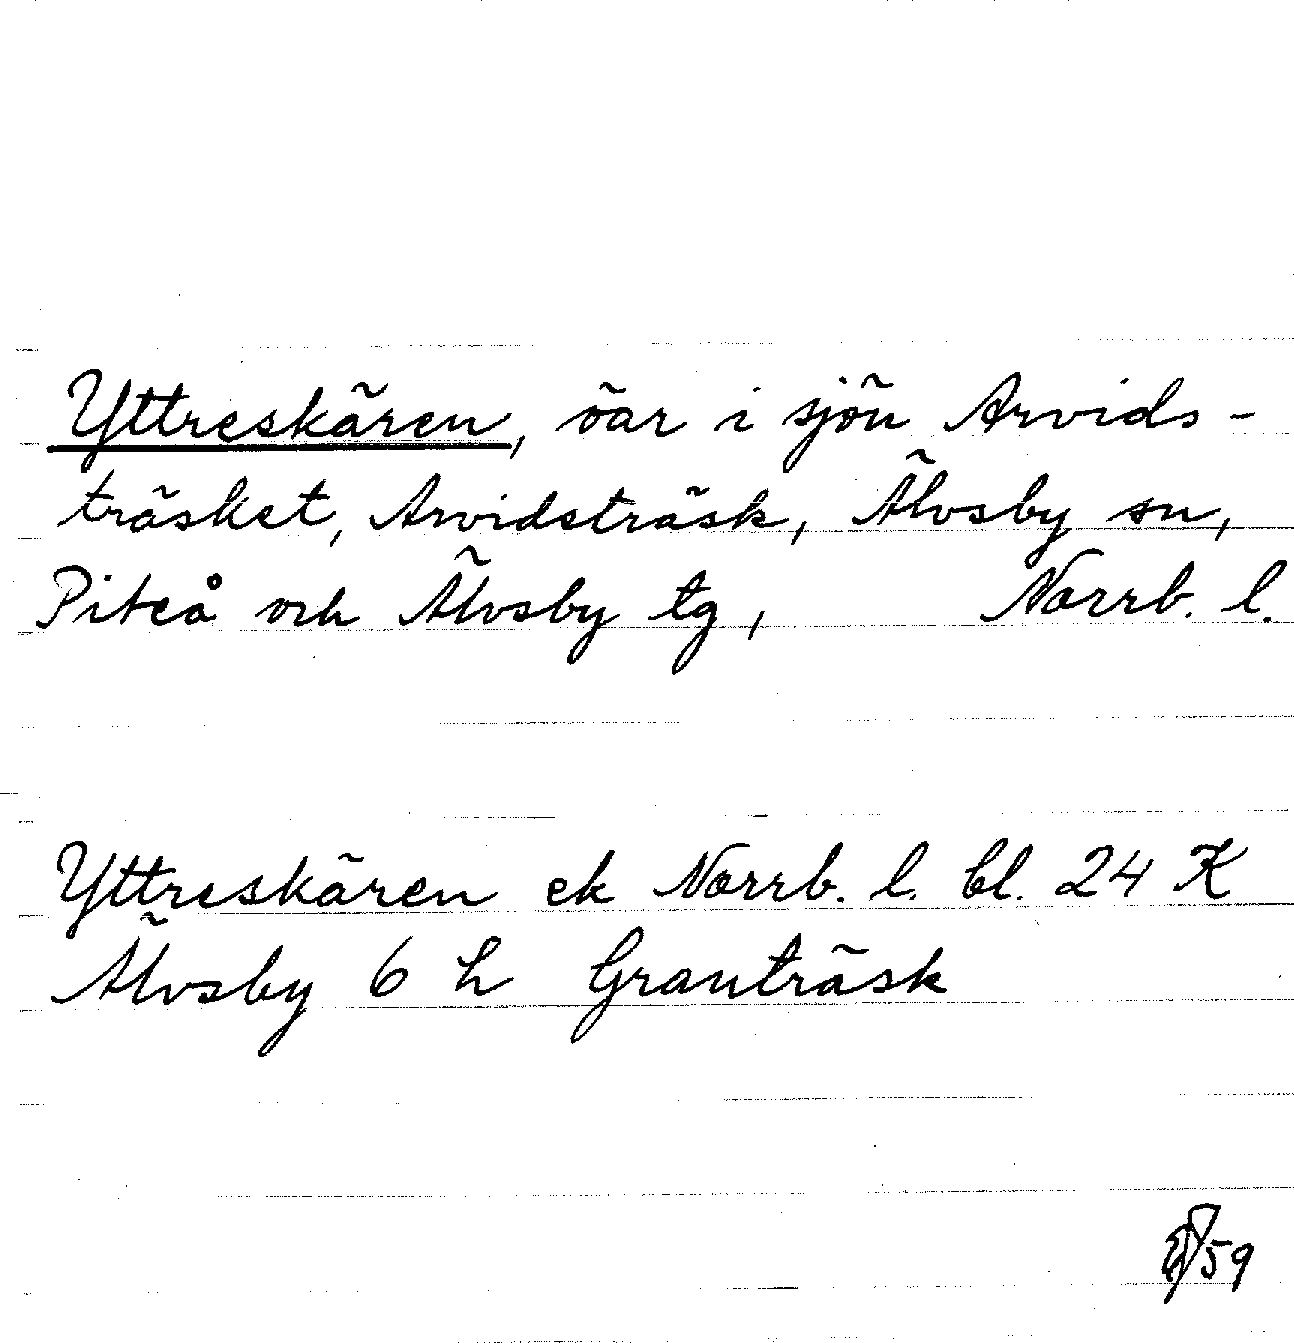 Yttreskären, öar i sjön Arvids-
träsket, Arvidsträsk, Älvsby sn,
Piteå och Älvsby tg, Norrb. l.
Yttreskären ek Norrb. l. bl. 24 K
Älvsby 6 h Granträsk
59